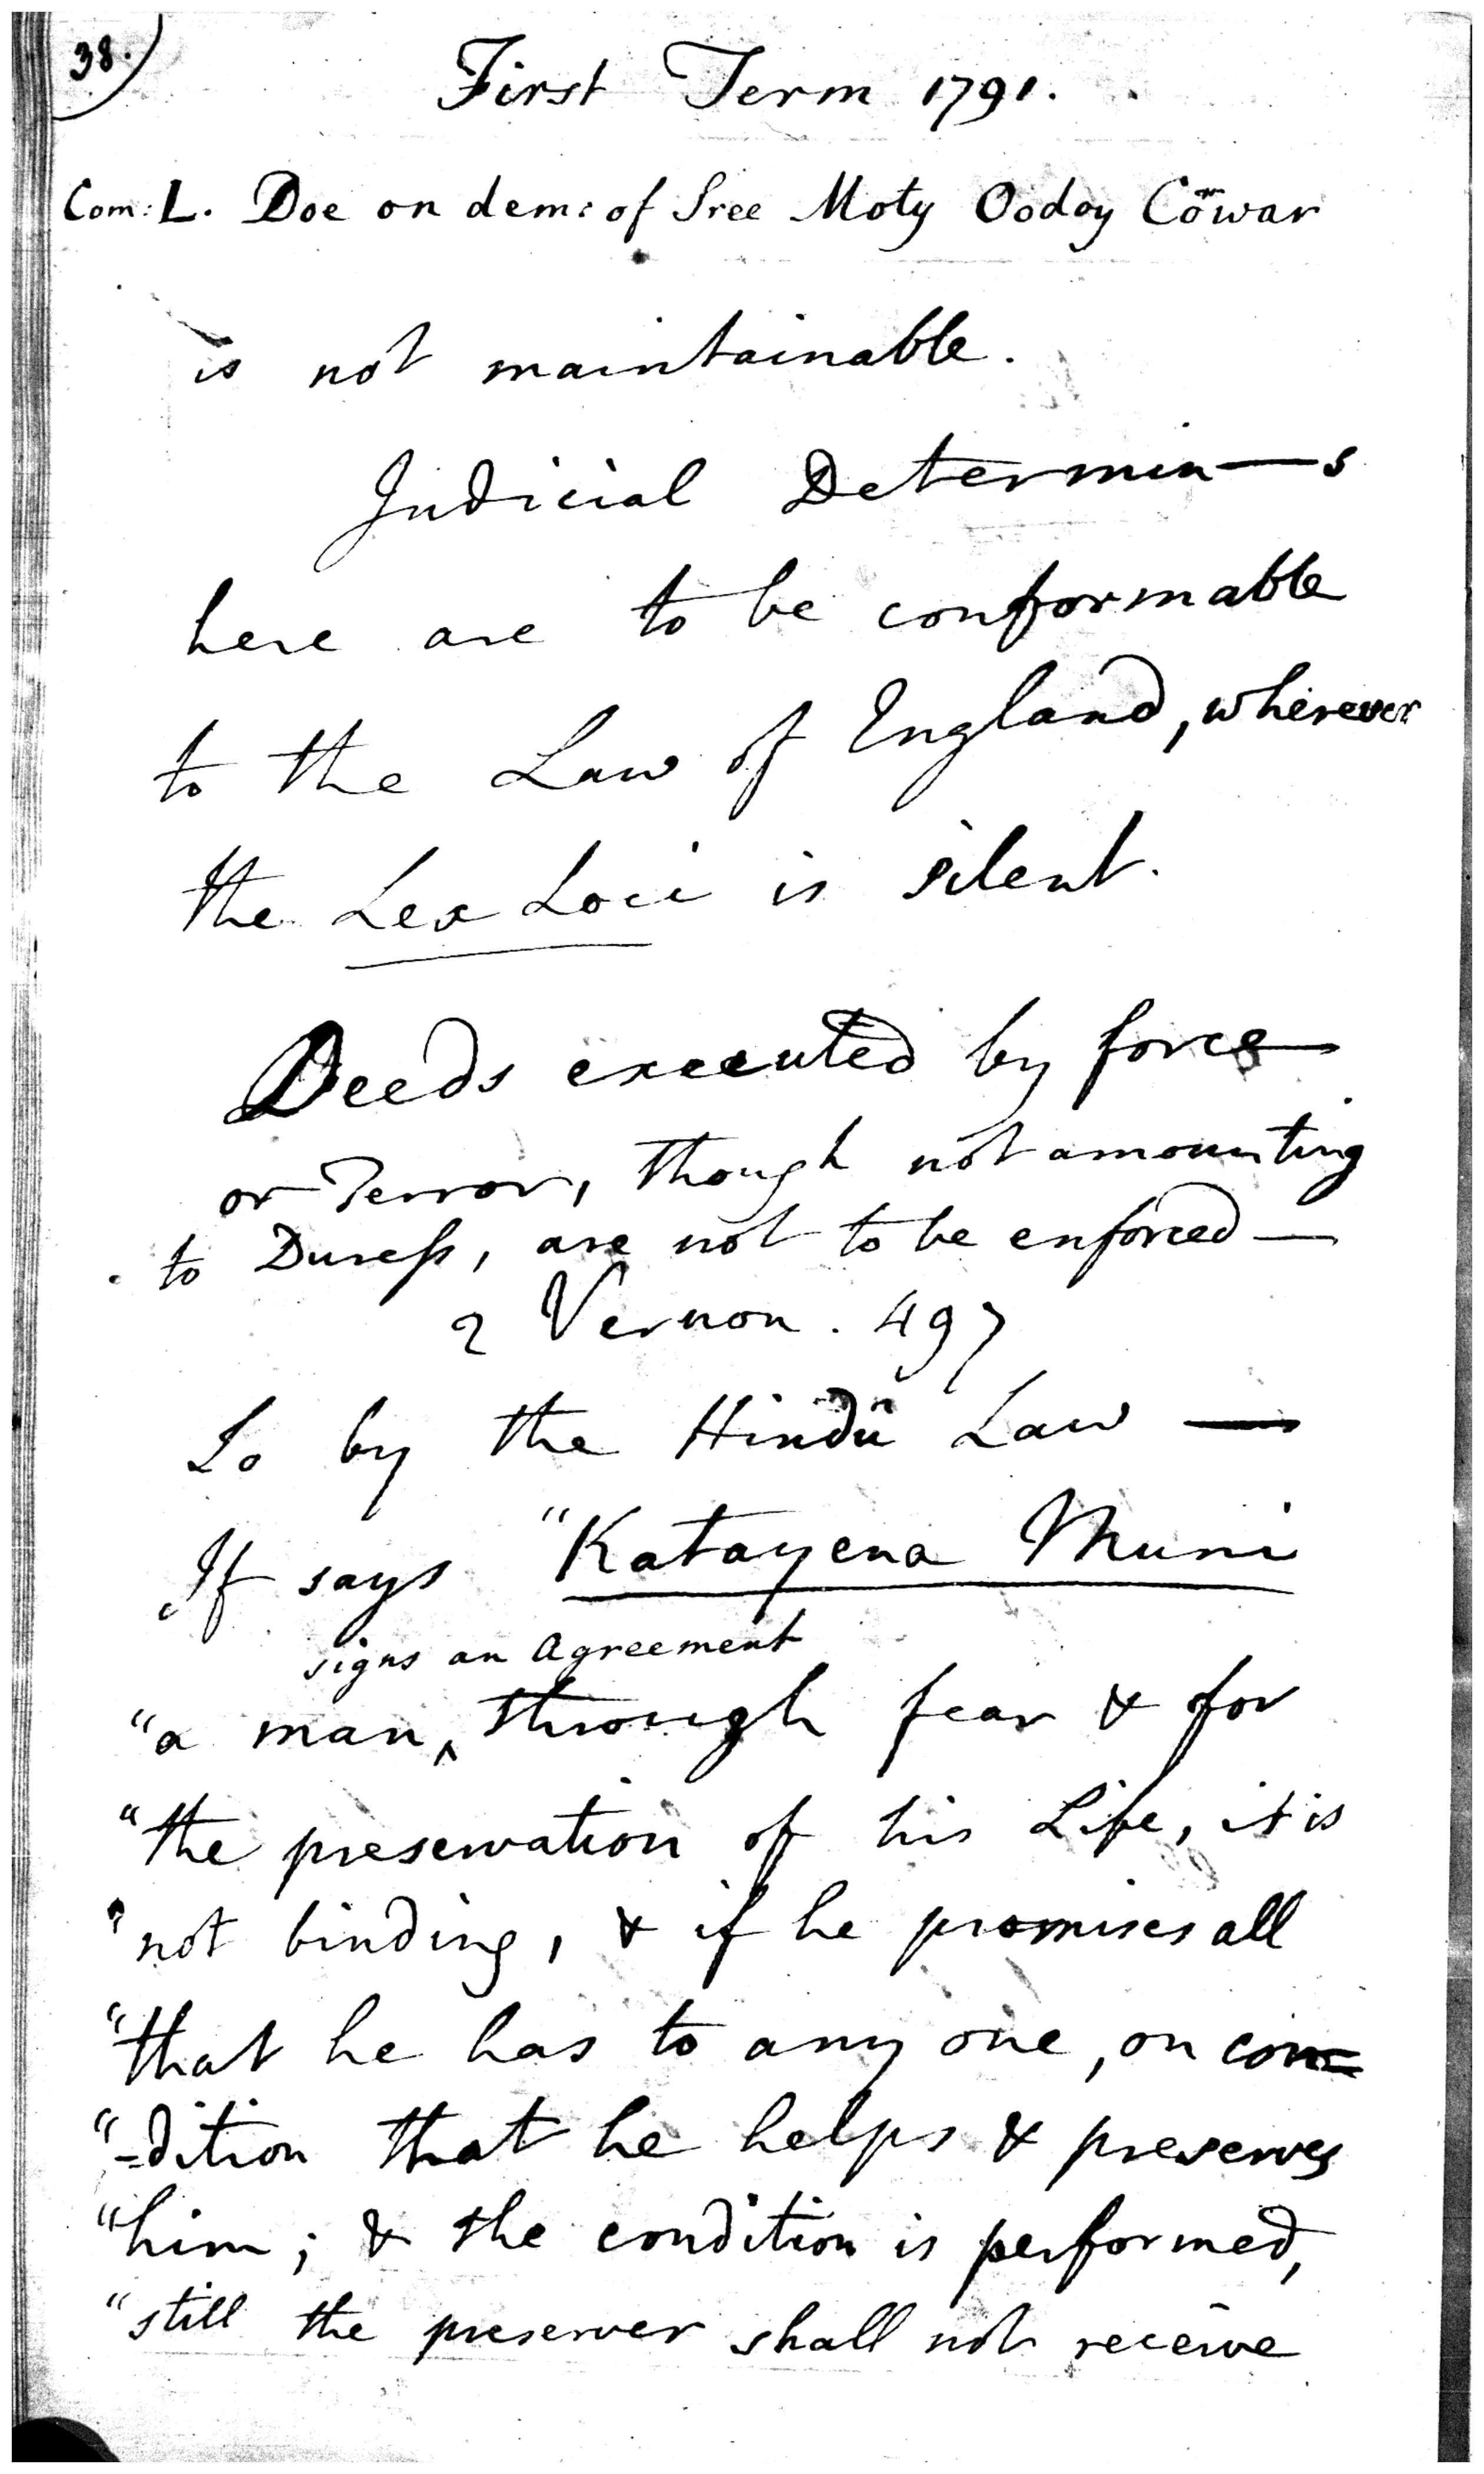 38.
First Term 1791.
Com: L. Doe on dem: of Sree Moty Ooday Cowar
is not maintainable.
Judicial Determin—s
here are to be conformable
to the Law of England, wherever
the Lex Loci is silent.
Deeds executed by force
or Terror, though not amounting
to Duress, are not to be enforced—
2 Vernon. 497
So by the Hindū Law —
If says "Katayena Muni
signs an Agreement
"a man ^ through fear & for
"the preservation of his Life, it is
"not binding, & if he promises all
"that he has to any one, on con=
"=dition that he helps & preserves
"him; & the condition is performed,
"still the preserver shall not receive